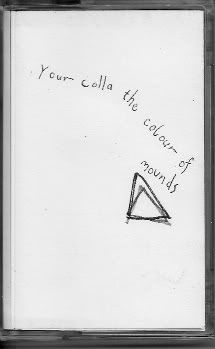 Your colla the colour of mounds